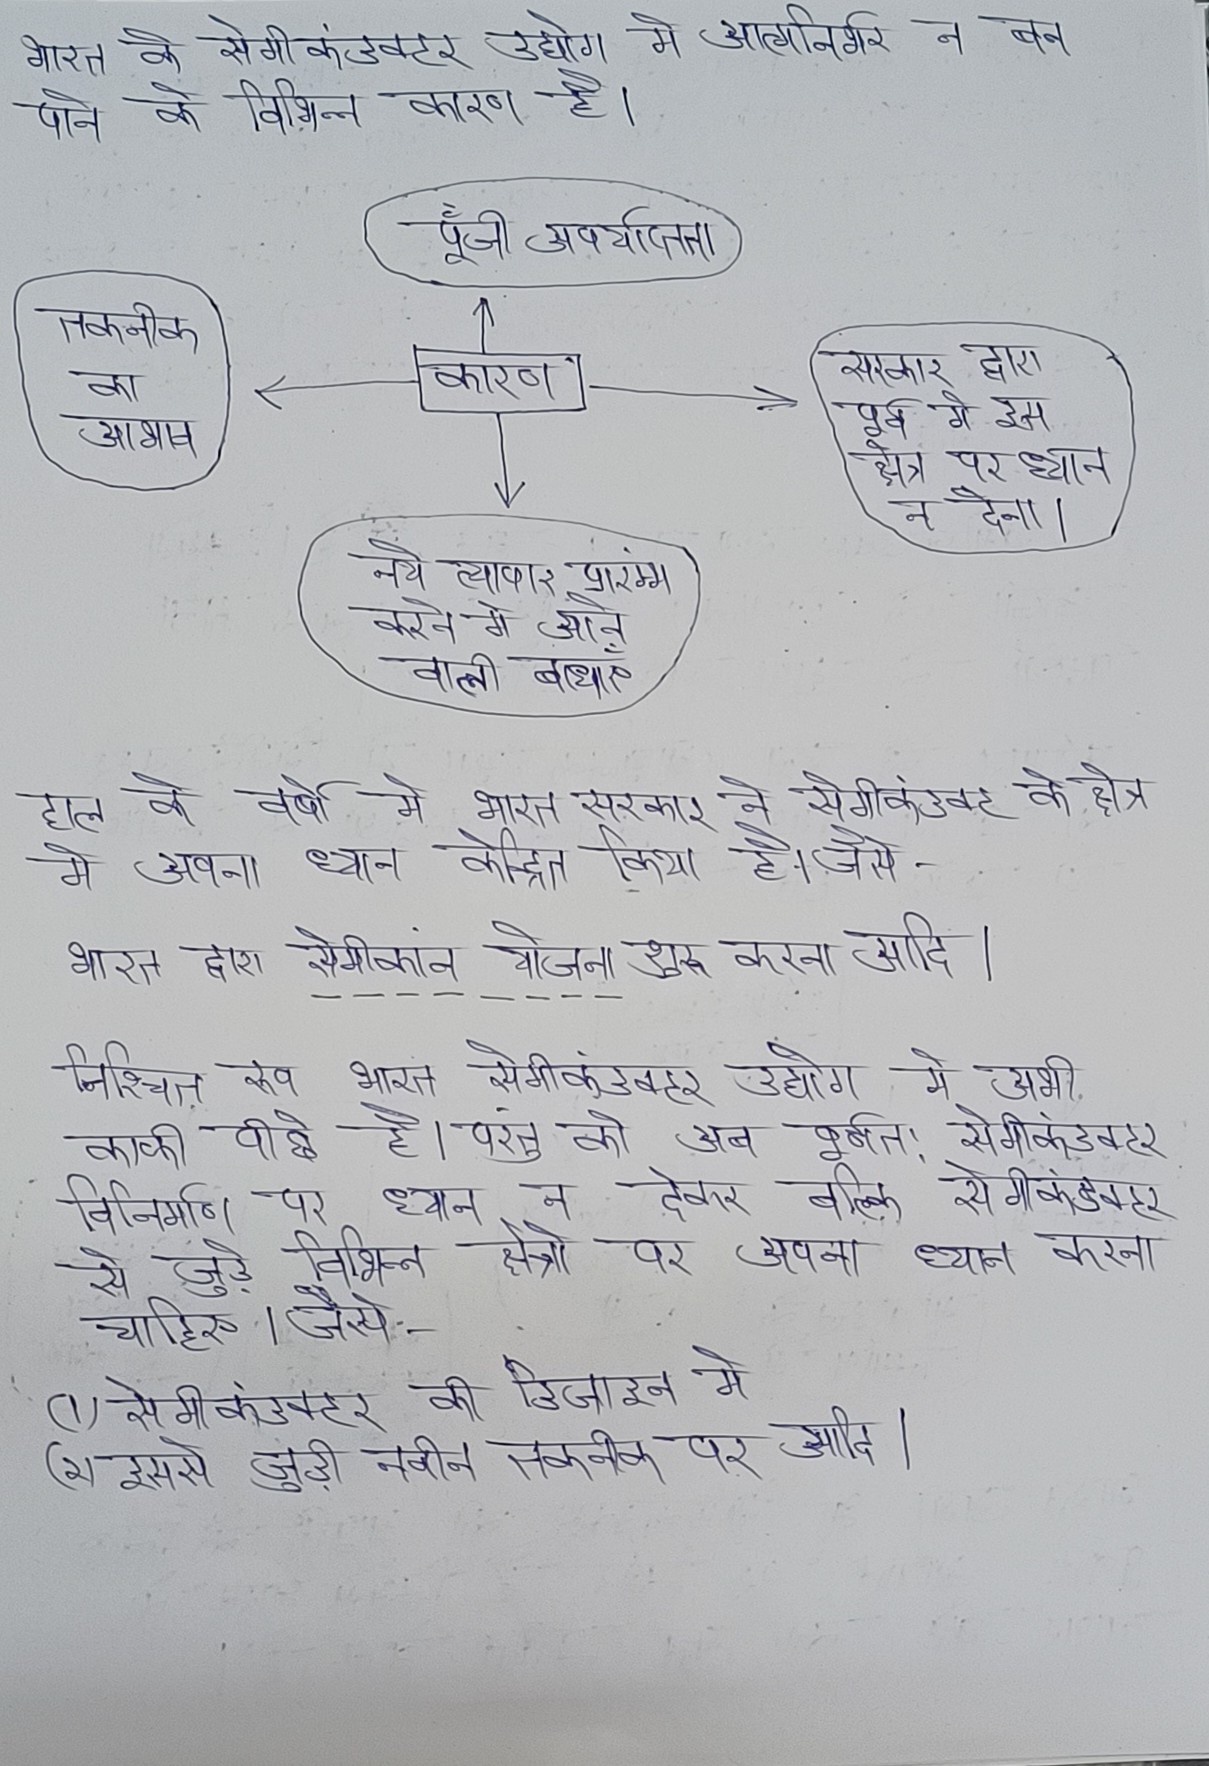 भारत के सेमीकंडक्टर उद्योग मे आत्मनिर्भर न बन
पाने के विभिन्न कारण है।
पूँजी अपर्याप्तता
तकनीक
का
आभाव
कारण
सरकार द्वारा
पूर्व मे इस
क्षेत्र पर ध्यान
न देना।
नये व्यापार प्रारंम्भ
करने मे आने
वाली बाधाएँ
हाल के वर्षो मे भारत सरकार ने सेमीकंडक्ट के क्षेत्र
मे अपना ध्यान केंद्रित किया है। जैसे -
भारत द्वारा सेमीकांन योजना शुरू करना आदि।
निश्चित रूप भारत सेमीकंडक्टर उद्योग मे अभी
काफी पीछे है। परंतु को अब पूर्णतः सेमीकंडक्टर
विनिर्माण पर ध्यान न देकर बल्कि सेमीकंडक्टर
से जुड़े विभिन्न क्षेत्रो पर अपना ध्यान करना
चाहिए । जैसे:-
(1) सेमीकंडक्टर की डिजाइन मे
(2) इससे जुड़ी नवीन तकनीक पर आदि।